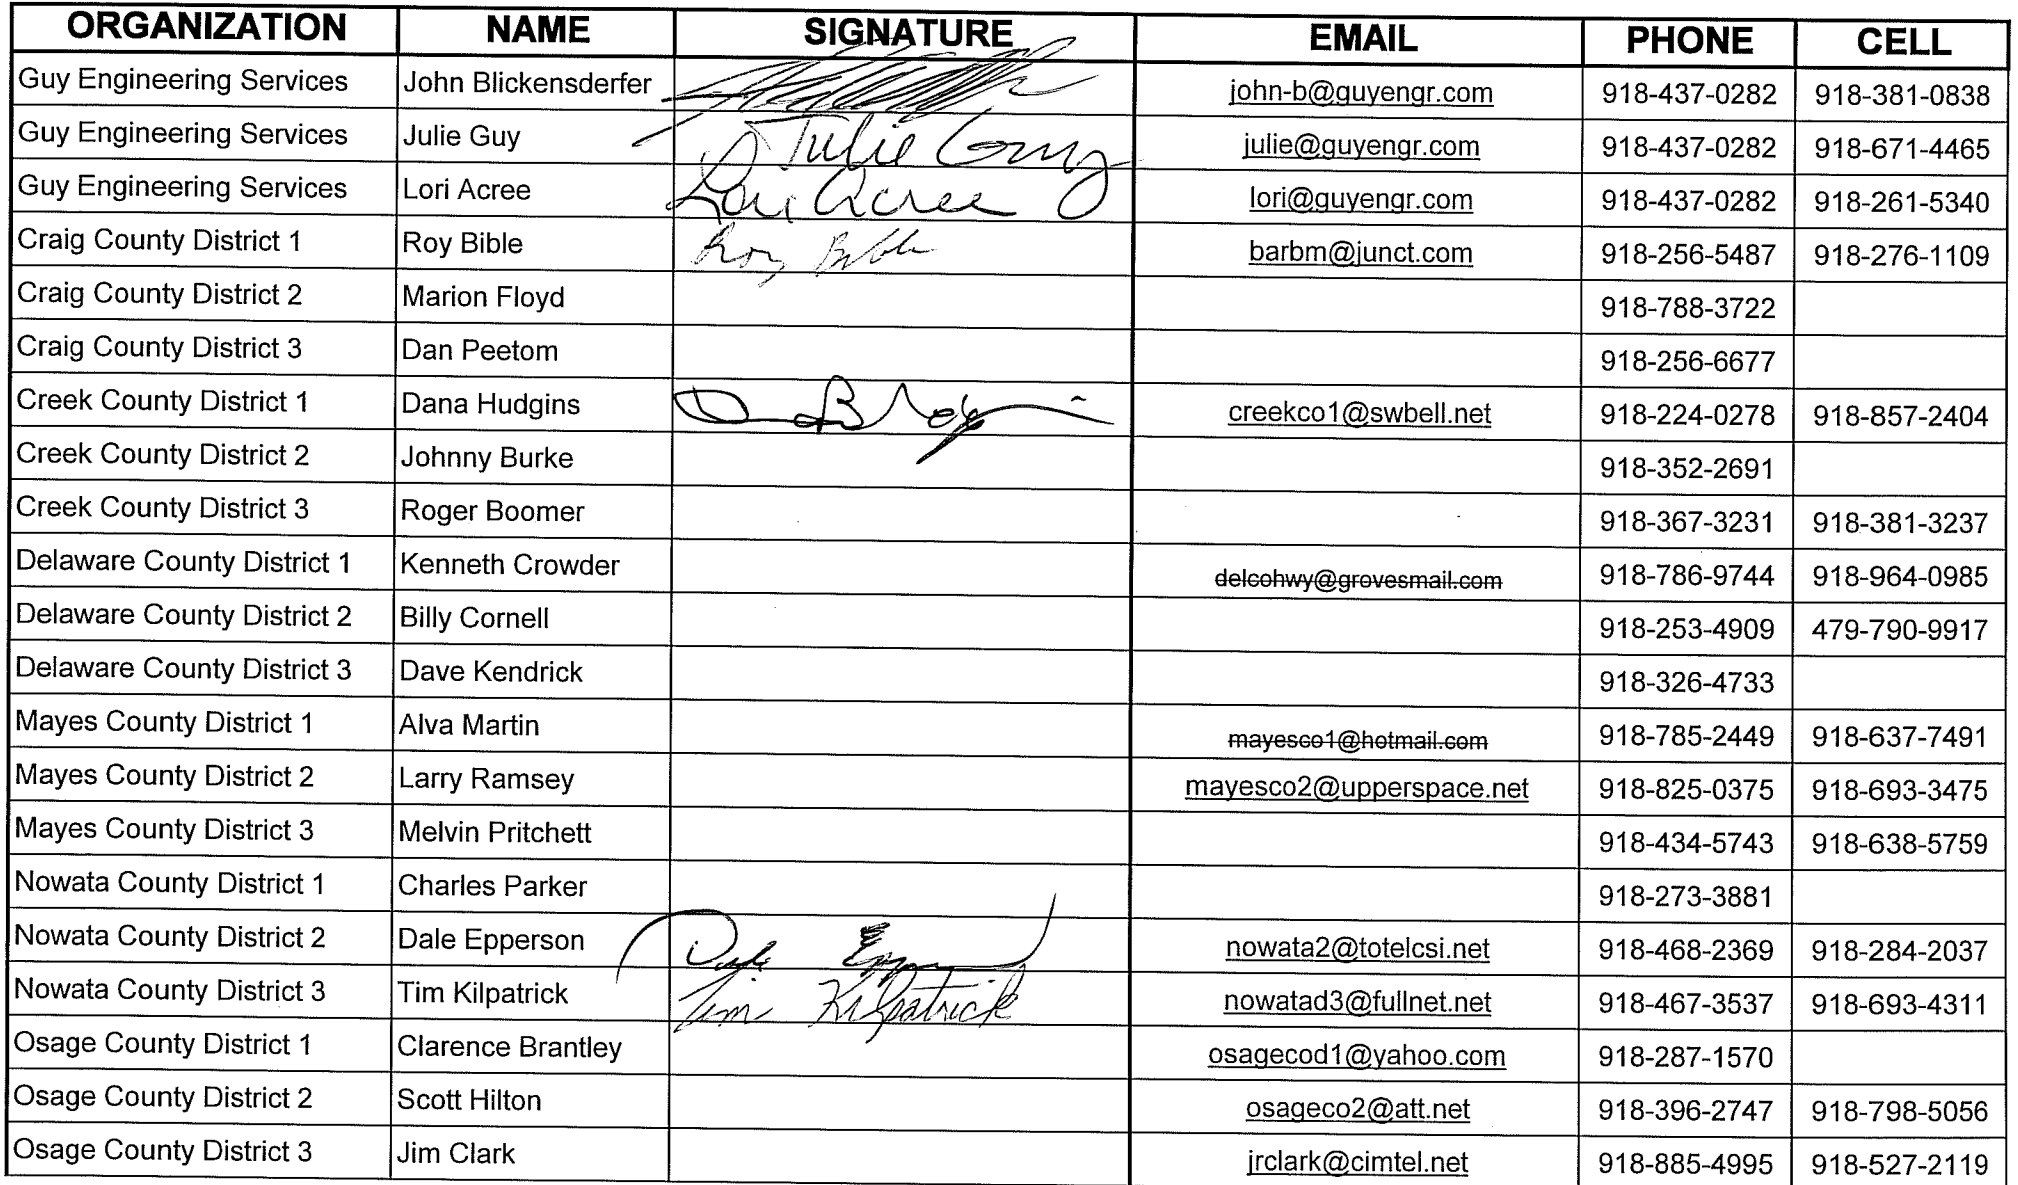 ORGANIZATION NAME SIGNATURE EMAIL PHONE CELL
Guy Engineering Services John Blickensderfer john-b@guyengr.com 918-437-0282 918-381-0838
Guy Engineering Services Julie Guy Julie Guy julie@guyengr.com 918-437-0282 918-671-4465
Guy Engineering Services Lori Acree Lori Acree lori@guyengr.com 918-437-0282 918-261-5340
Craig County District 1 Roy Bible Roy Bible barbm@junct.com 918-256-5487 918-276-1109
Craig County District 2 Marion Floyd 918-788-3722
Craig County District 3 Dan Peetom 918-256-6677
Creek County District 1 Dana Hudgins creekco1@swbell.net 918-224-0278 918-857-2404
Creek County District 2 Johnny Burke 918-352-2691
Creek County District 3 Roger Boomer 918-367-3231 918-381-3237
Delaware County District 1 Kenneth Crowder delcohwy@grovesmail.com 918-786-9744 918-964-0985
Delaware County District 2 Billy Cornell 918-253-4909 479-790-9917
Delaware County District 3 Dave Kendrick 918-326-4733
Mayes County District 1 Alva Martin mayesco1@hotmail.com 918-785-2449 918-637-7491
Mayes County District 2 Larry Ramsey mayesco2@upperspace.net 918-825-0375 918-693-3475
Mayes County District 3 Melvin Pritchett 918-434-5743 918-638-5759
Nowata County District 1 Charles Parker 918-273-3881
Nowata County District 2 Dale Epperson Dale nowata2@totelcsi.net 918-468-2369 918-284-2037
Nowata County District 3 Tim Kilpatrick Tim Kilpatrick nowatad3@fullnet.net 918-467-3537 918-693-4311
Osage County District 1 Clarence Brantley osagecod1@yahoo.com 918-287-1570
Osage County District 2 Scott Hilton osageco2@att.net 918-396-2747 918-798-5056
Osage County District 3 Jim Clark jrclark@cimtel.net 918-885-4995 918-527-2119